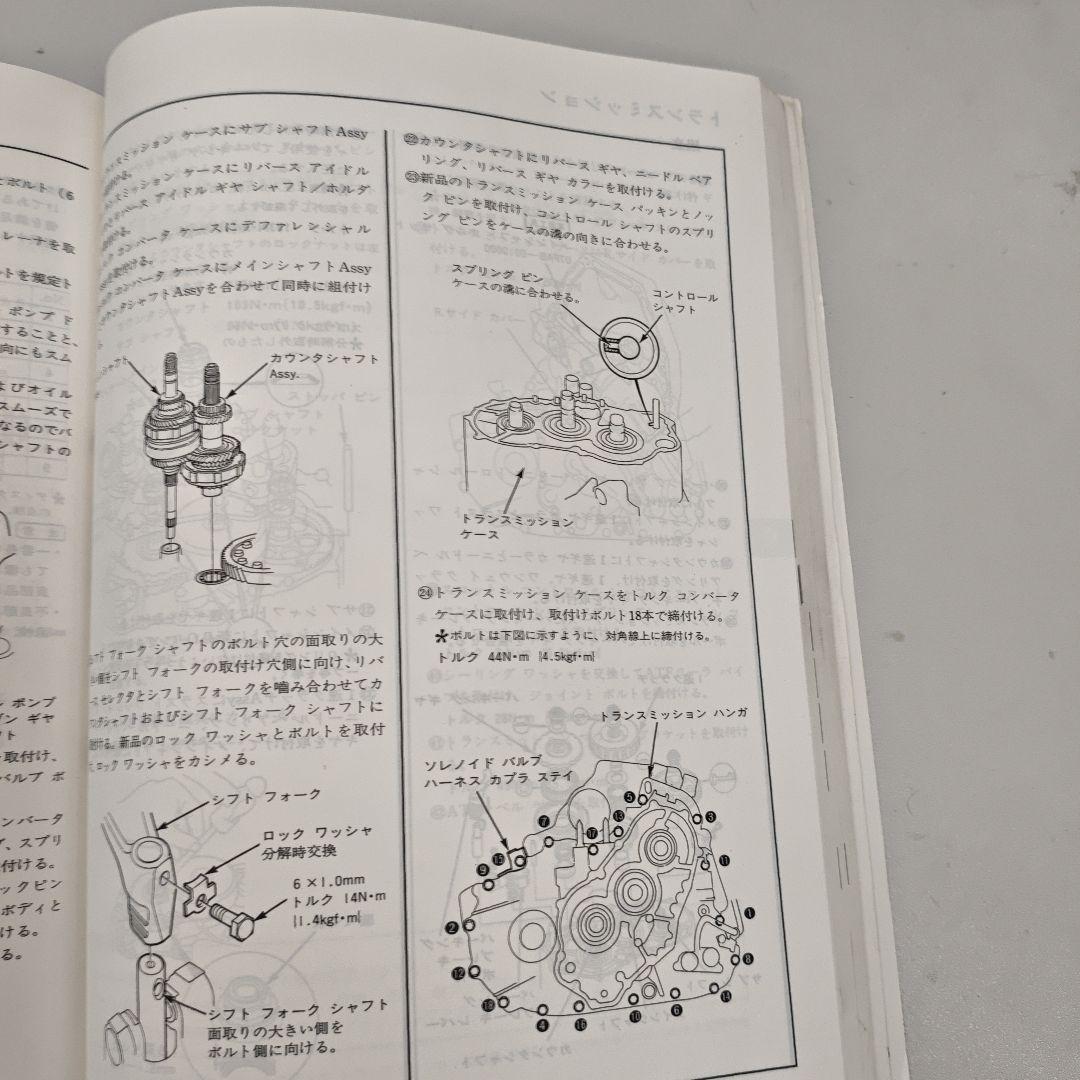 ボルト（6
レーナを取
トを規定ト
ポンプ ド
すること、
向にもスム
よびオイル
スムーズで
なるのでバ
シャフトの
ポンプ
ギヤ
取付け、
バルブ ボ
ンバータ
、スプリ
付ける。
ックピン
ボディと
ける。
る。
スミッション ケースにサブ シャフトAssy
ける。
スミッション ケースにリバース アイドル
バース アイドル ギヤ シャフト／ホルダ
ける。
コンバータ ケースにデファレンシャル
取付ける。
コンバータ ケースにメインシャフトAssy
シャフトAssyを合わせて同時に組付け
カウンタシャフト
Assy.
フォーク シャフトのボルト穴の面取りの大
シフト フォークの取付け穴側に向け、リバ
セレクタとシフト フォークを嚙み合わせてカ
シャフトおよびシフト フォーク シャフトに
付ける。新品のロック ワッシャとボルトを取付
ロック ワッシャをカシメる。
シフト フォーク
ロック ワッシャ
分解時交換
6×1.0mm
トルク 14N・m
{1.4kgf・m}
シフト フォーク シャフト
面取りの大きい側を
ボルト側に向ける。
㉒カウンタシャフトにリバース ギヤ、ニードル ベア
リング、リバース ギヤ カラーを取付ける。
㉓新品のトランスミッション ケース パッキンとノッ
ク ピンを取付け、コントロール シャフトのスプリ
ング ピンをケースの溝の向きに合わせる。
スプリング ピン
ケースの溝に合わせる。
コントロール
シャフト
トランスミッション
ケース
㉔トランスミッション ケースをトルク コンバータ
ケースに取付け、取付けボルト18本で締付ける。
＊ボルトは下図に示すように、対角線上に締付ける。
トルク 44N・m {4.5kgf・m}
トランスミッション ハンガ
ソレノイド バルブ
ハーネス カプラ ステイ
❺
❸
⓭
❼
⓱
⓯
⓫
❾
❶
❷
❽
⓬
⓲
⓮
❻
❿
❹
⓰